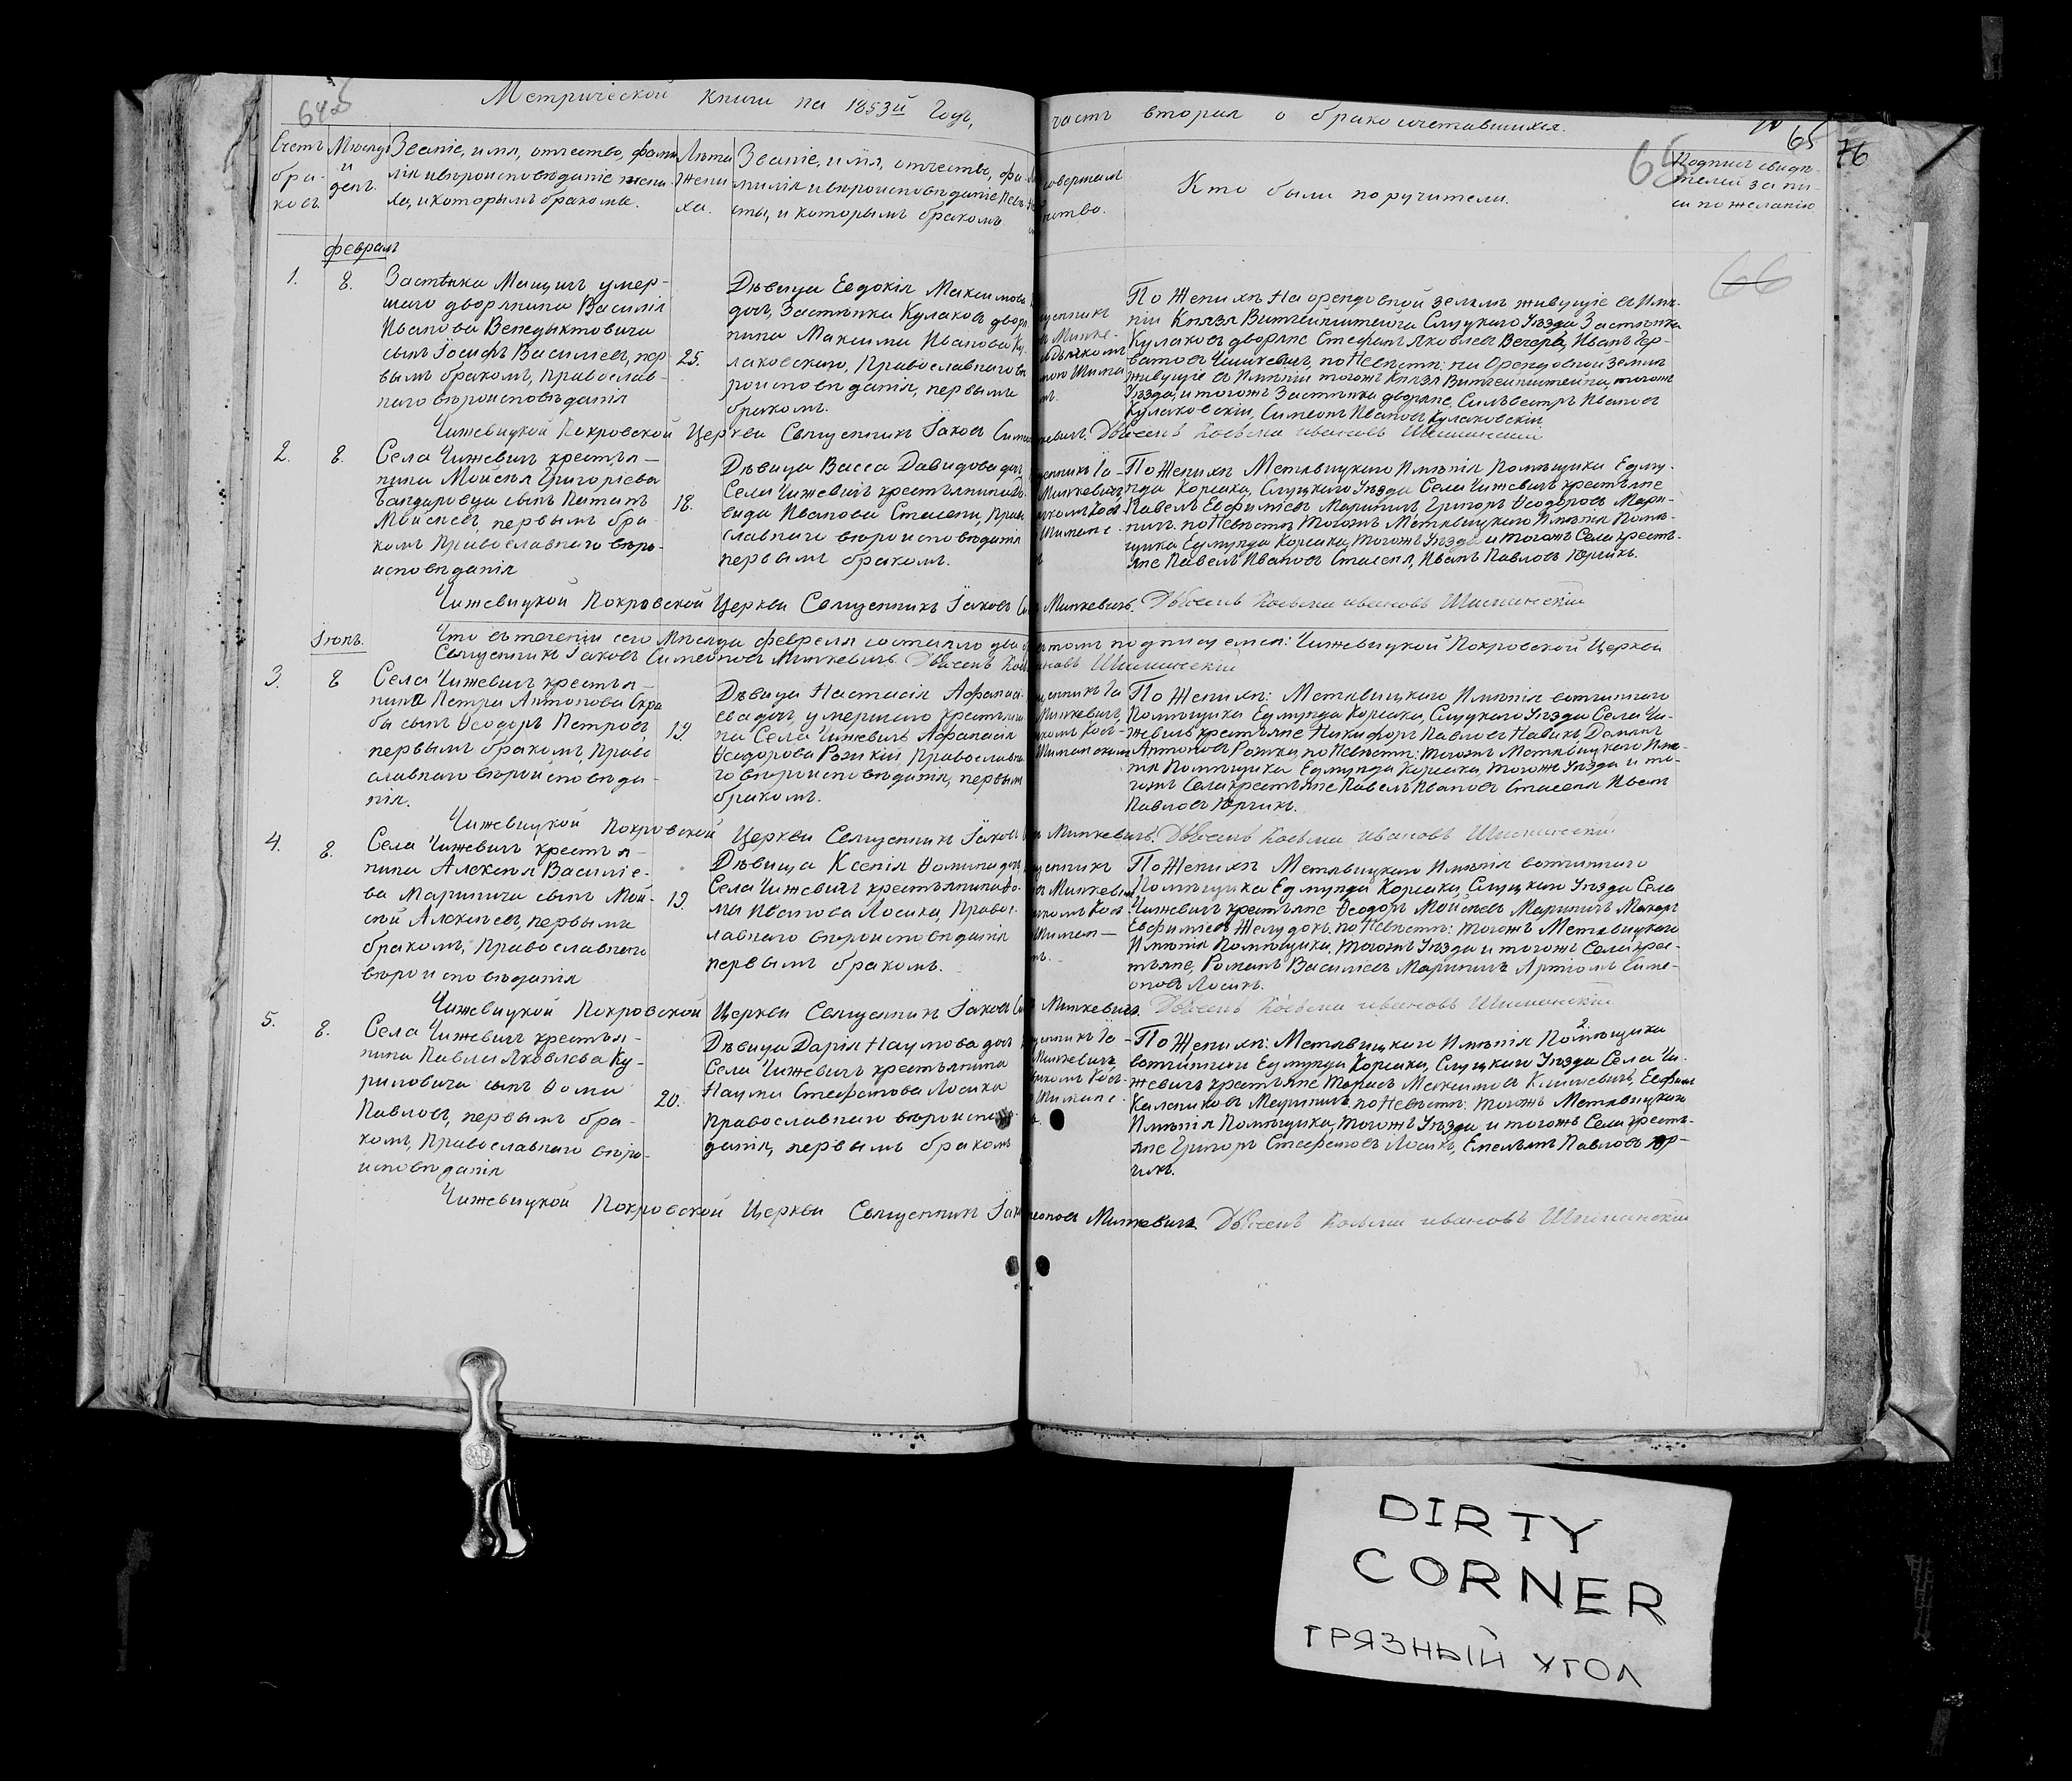 Метрической Книги на 1853й Годъ,
часть вторая о бракосочетавшихся.
64
65
65
76
66
Счетъ браковъ
Мѣсяцъ и день.
Званіе, имя, отчество, фами-
лія и вѣроисповѣданіе жени-
ха, и которымъ бракомъ.
Лѣта
жени
ха.
Званіе, имя, отчество, фа-
милія и вѣроисповѣданіе невѣ-
сты, и которымъ бракомъ
совершалъ
Кто были поручители.
Подпись свидѣ-
телей записи
по желанію
февраль
1.
8.
Застѣнка Мащичъ умер-
шаго дворянина Василія
Иванова Венедыктовича
сынъ Іосифъ Василіевъ, пер
вымъ бракомъ, Православ-
наго вѣроисповѣданія
25.
Дѣвица Евдокія Максимова
дочь, Застѣнка Кулаковъ дворя
нина Максима Иванова Ку-
лаковскаго, Православнаго вѣ
роисповѣданія, первымъ
бракомъ.
По Женихѣ На орендовной землѣ живущіе въ Имѣ-
ніи Князя Витгенштейна Слуцкаго Уѣзда Застѣнка
Кулаковъ дворяне Стефанъ Яковлевъ Вечеръ, Иванъ
Чижевичъ, по Невѣстѣ: на Орендовной землѣ
живущіе въ Имѣніи тогожъ Князя Витгенштейна, тогожъ
Уѣзда, и тогожъ Застѣнка дворяне, Сильвестръ Ивановъ
Кулаковскій, Симеонъ Ивановъ Кулаковскій
Чижевицкой Покровской Церкви Священникъ Іаковъ
Козьма Ивановъ
2.
8.
Села Чижевичъ крестья-
нина Мойсея Григоріева
Бандаровца сынъ
Мойсеевъ, первымъ бра
комъ Православнаго вѣро-
исповѣданія
18.
Дѣвица Васса Давидова дочь
Села Чижевичъ крестьянина Да-
вида Иванова Стасени, Право
славнаго вѣроисповѣданія
первымъ бракомъ.
По Женихѣ Метявицкаго Имѣнія Помѣщика Едму-
нда Корсака, Слуцкаго Уѣзда Села Чижевичъ крестьяне
Павелъ Евфиміевъ Мариничъ, Григоръ Ѳеодоровъ Мари-
ничъ, по Невѣстѣ тогожъ Метявицкаго Имѣнія Помѣ-
щика Едмунда Корсака, тогожъ Уѣзда и тогожъ Села кресть-
яне Павелъ Ивановъ Стасеня, Иванъ Павловъ Юрчикъ.
Чижевицкой Покровской Церкви Священникъ Іаковъ
Минкевичъ. Козьма Ивановъ
Іюнь.
Что въ теченіи сего Мѣсяца февраля состояло два
въ томъ подписуемся: Чижевицкой Покровской Церкви
Священникъ Іаковъ Симеоновъ Минкевичъ.
3.
8
Села Чижевичъ крестья-
нина Петра Антонова Скра
бы сынъ Ѳеодоръ Петровъ,
первымъ бракомъ, Право
славнаго вѣроисповѣда-
нія.
19.
Дѣвица Настасія Афанасі-
ева дочь, умершаго крестьяни
на Села Чижевичъ Афанасія
Ѳеодорова Православна
го вѣроисповѣданія, первымъ
бракомъ.
По Женихѣ: Метявицкаго Имѣнія вотчиннаго
Помѣщика Едмунда Корсака, Слуцкаго Уѣзда Села Чи-
жевичъ крестьяне Никифоръ Павловъ Новикъ
Антоновъ Рожка, по Невѣстѣ: тогожъ Метявицкаго Имѣ-
нія Помѣщика Едмунда Корсака, тогожъ Уѣзда и то-
гожъ Села крестьяне Павелъ Ивановъ Стасеня Иванъ
Павловъ Юрчикъ.
Чижевицкой Покровской Церкви Священникъ Іаковъ
Минкевичъ. Козьма Ивановъ
4.
8.
Села Чижевичъ крестья-
нина Алексея Василіе-
ва Маринича сынъ Мой-
сей Алексѣевъ, первымъ
бракомъ, Православнаго
вѣроисповѣданія
19.
Дѣвица Ксенія Ѳомина дочь
Села Чижевичъ крестьянина Ѳо-
мы Иванова Лосика, Правос-
лавнаго вѣроисповѣданія
первымъ бракомъ.
По Женихѣ Метявицкаго Имѣнія вотчиннаго
Помѣщика Едмунда Корсака, Слуцкаго Уѣзда Села
Чижевичъ крестьяне Ѳеодоръ Мойсеевъ Мариничъ Макаръ
Евфиміевъ Желудокъ, по Невѣстѣ: тогожъ Метявицкаго
Имѣнія Помѣщика, тогожъ Уѣзда и тогожъ Села крес-
тьяне, Романъ Василіевъ Мариничъ Артіомъ Симе-
оновъ Лосикъ.
Чижевицкой Покровской Церкви Священникъ Іаковъ
Минкевичъ. Козьма Ивановъ
5.
8.
Села Чижевичъ крестья-
нина Павла Яковлева Ку-
риловича сынъ Ѳома
Павловъ, первымъ бра-
комъ, Православнаго вѣро-
исповѣданія
20.
Дѣвица Дарія Наумова дочь
Села Чижевичъ крестьянина
Наума Стефанова Лосика
Православнаго вѣроисповѣ-
данія, первымъ бракомъ
По Женихѣ: Метявицкаго Имѣнія Помѣщика
вотчиннаго Едмунда Корсака, Слуцкаго Уѣзда Села Чи-
жевичъ крестьяне Тарасъ Максимовъ Климовичъ, Евфимъ
Мариничъ, по Невѣстѣ: тогожъ Метявицкаго
Имѣнія Помѣщика, тогожъ Уѣзда и тогожъ Села кресть-
яне Григоръ Стефановъ Лосикъ, Емельянъ Павловъ Юр-
чикъ.
Чижевицкой Покровской Церкви Священникъ
Минкевичъ. Козьма Ивановъ
DIRTY
CORNER
ГРЯЗНЫЙ УГОЛ